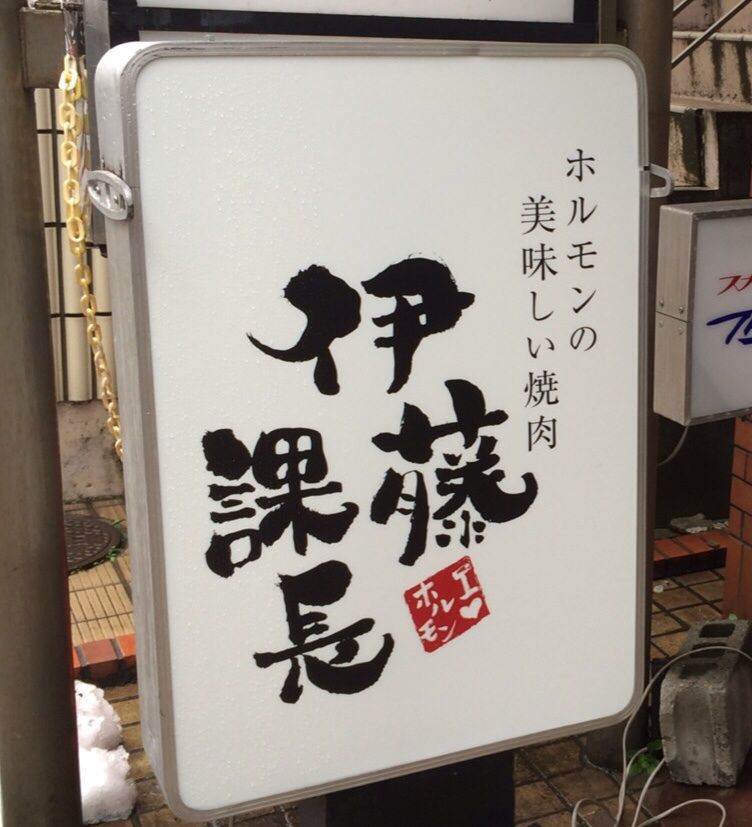 ホルモンの
美味しい焼肉
伊藤
課長
ホルモン